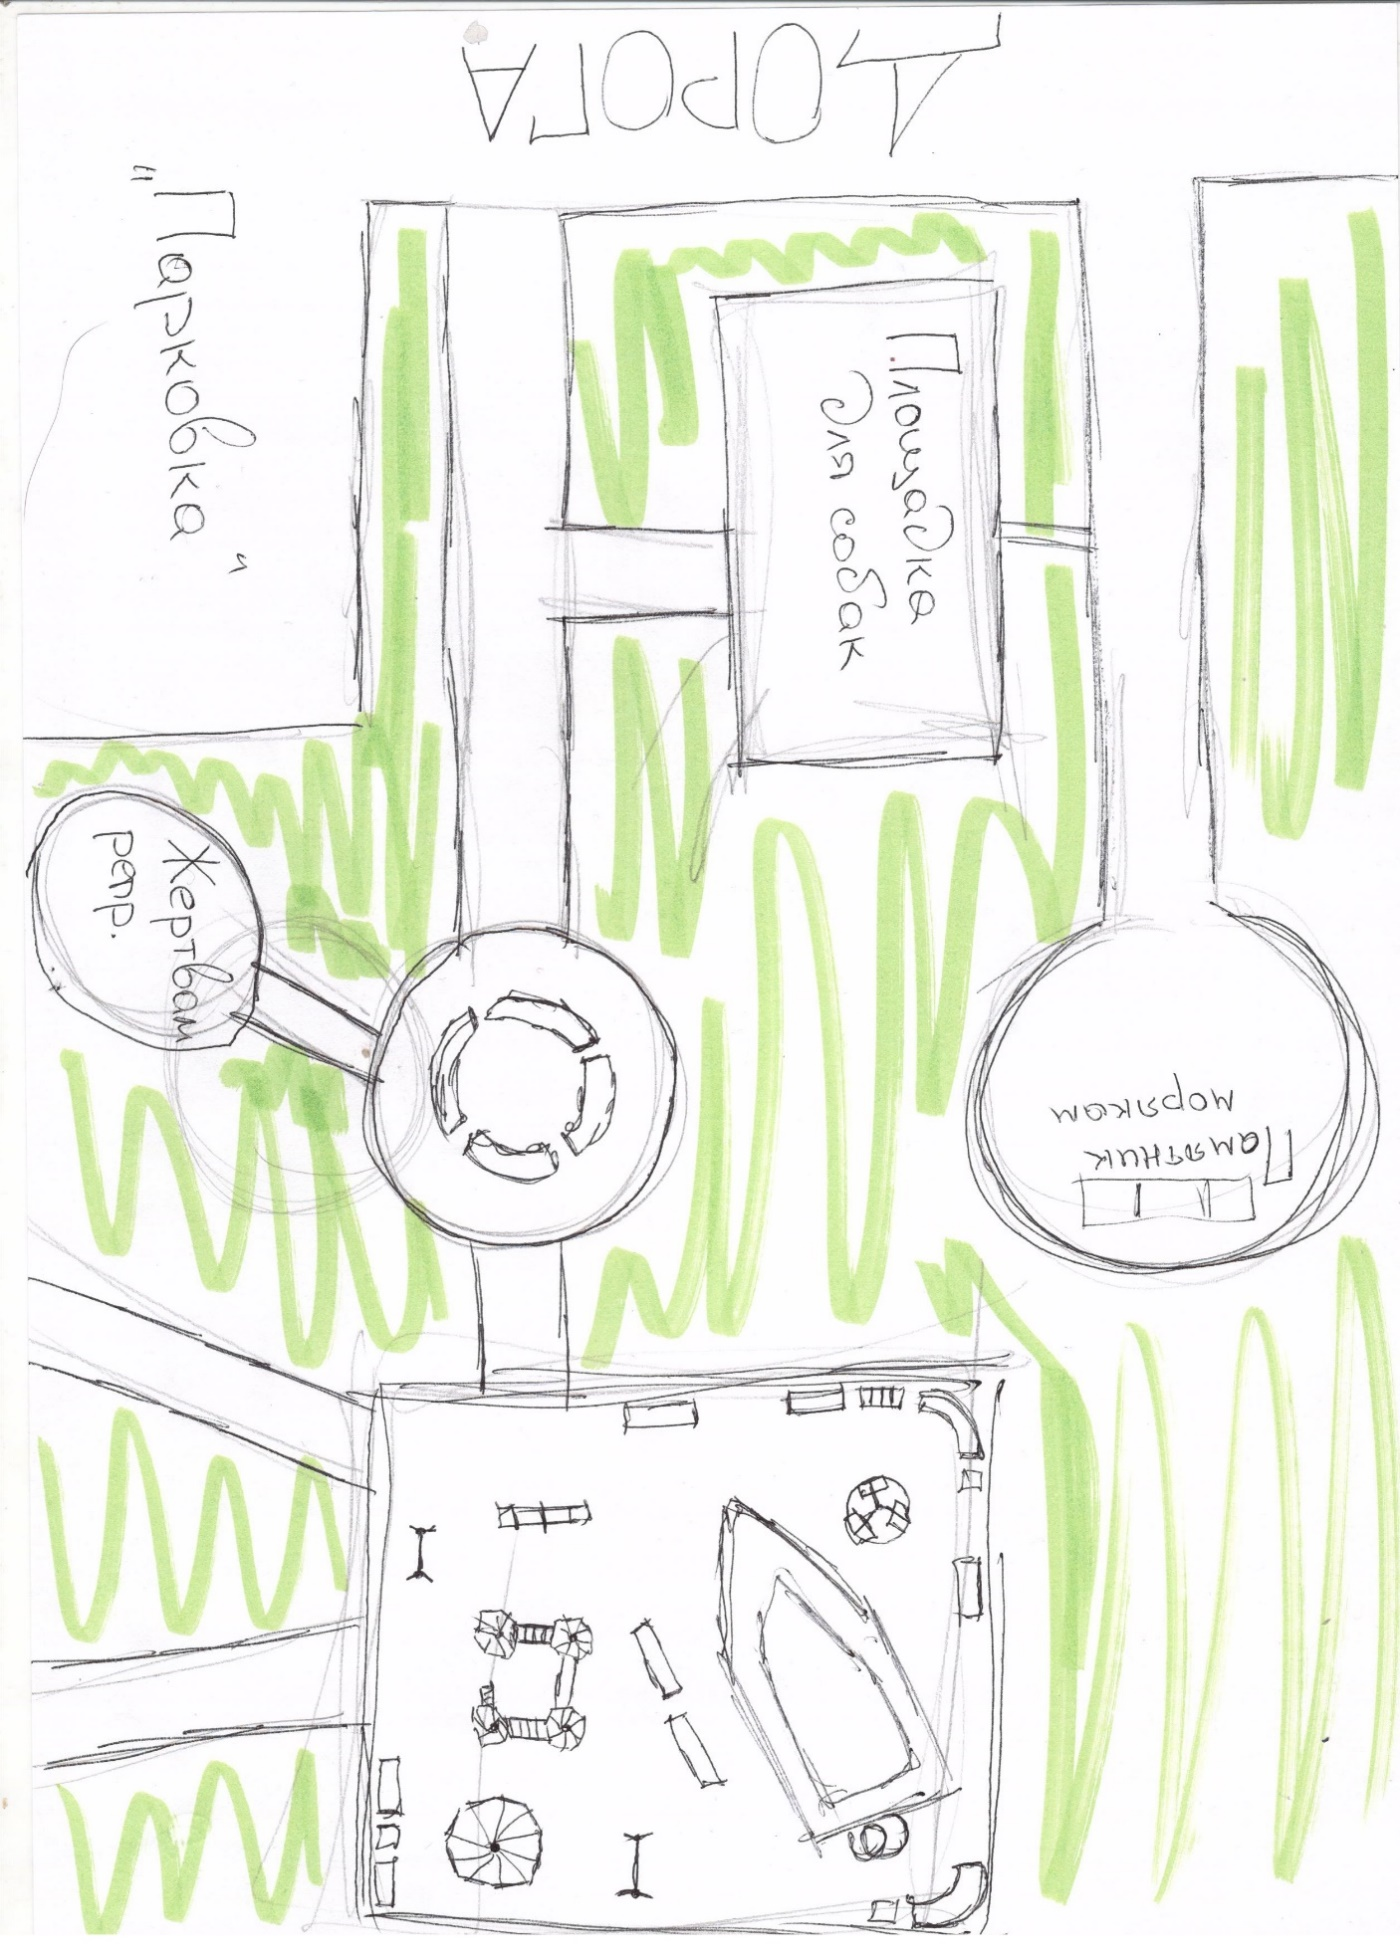 ДОРОГА
"Парковка"
Площадка
для собак
Жертвам
репр.
Памятник
морякам